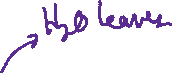 H₂O leaves